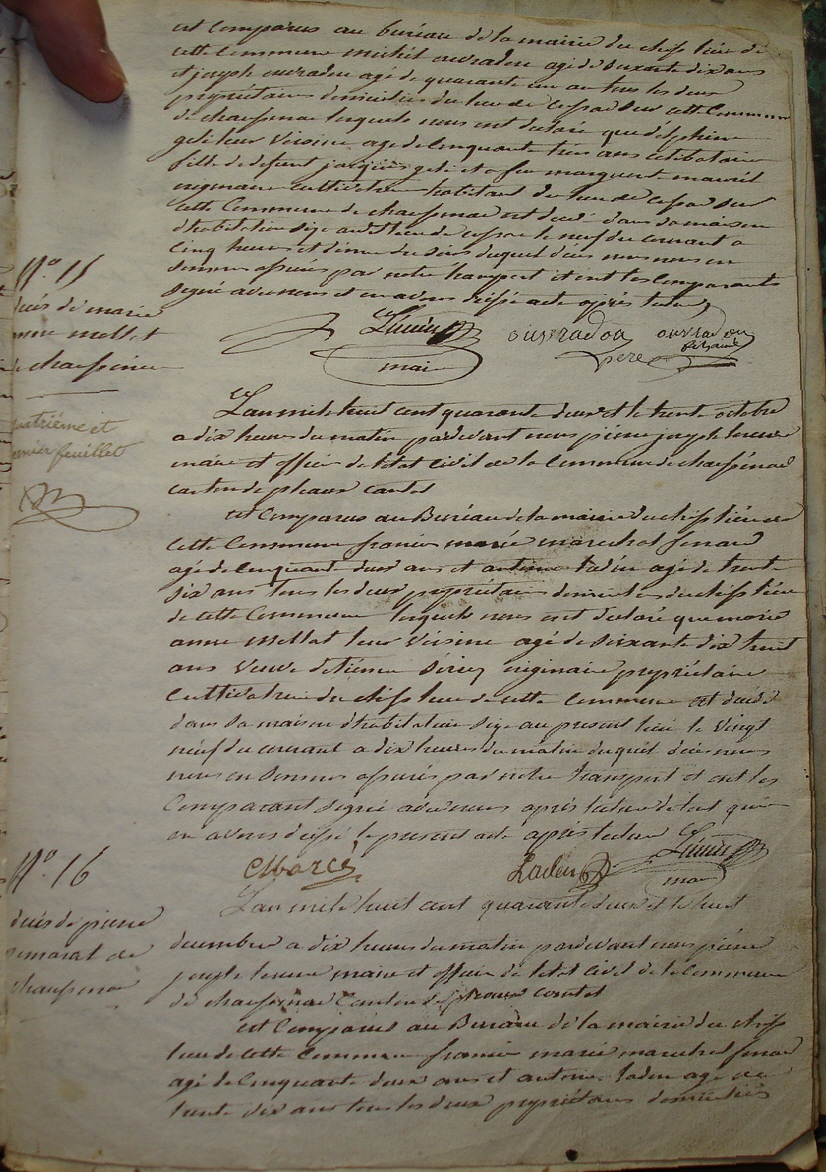 est Comparus au bureau de la mairie du chef lieu de
cette Commune michel ouvradou agé de soixante dix ans
et joseph ouvradou agé de quarante un an tous les deux
propriétaires domiciliés du lieu de cette Commune
de chaussenac lesquels nous ont déclaré que delphine
leur voisine agé de Cinquante trois ans célibataire
fille de défunt jacques et de feu marguerite
originaire cultivatrice habitant du lieu de
cette Commune de chaussenac est décédé dans sa maison
d'habitation size audit lieu de le neuf du courant a
Cinq heures et démie du soir duquel décès nous nous en
sommes assurés par notre transport et ont les Comparants
signé avec nous et en avons dressé acte après lecture
maire
ouvradou
père
ouvradou
N° 15
décès de marie
anne mellat
de chaussenac
quatrième et
dernier feuillet
L'an mil huit cent quarante deux et le trente octobre
a dix heures du matin pardevant nous pierre joseph
maire et officier de l'etat Civil de la Commune de chaussenac
canton de pleaux Cantal
est Comparus au Bureau de la mairie du chef lieu de
cette Commune francois marie marechal
agé de Cinquante deux ans et antoine ladou agé de trente
six ans tous les deux propriétaires domiciliés du chef lieu
de cette Commune lesquels nous ont déclaré que marie
anne Mellat leur Voisine agé de soixante dix huit
ans Veuve d'etienne originaire propriétaire
Cultivatrice du chef lieu de cette Commune est décédé
dans sa maison d'habitation size au present lieu le Vingt
neuf du courant a dix heures du matin duquel décès nous
nous en sommes assurés par notre transport et ont les
Comparant signé avec nous après lecture de tout quoi
en avons dressé le présent acte après lecture
maire
N° 16
décès de pierre
de
chaussenac
L'an mil huit cent quarante deux et le huit
decembre a dix heures du matin pardevant nous pierre
joseph maire et officier de l'etat Civil de la Commune
de chaussenac Canton de pleaux cantal
est Comparus au Bureau de la mairie du chef
lieu de cette Commune francois marie marechal
agé de Cinquante deux ans et antoine ladou agé de
trente six ans tous les deux propriétaires domiciliés